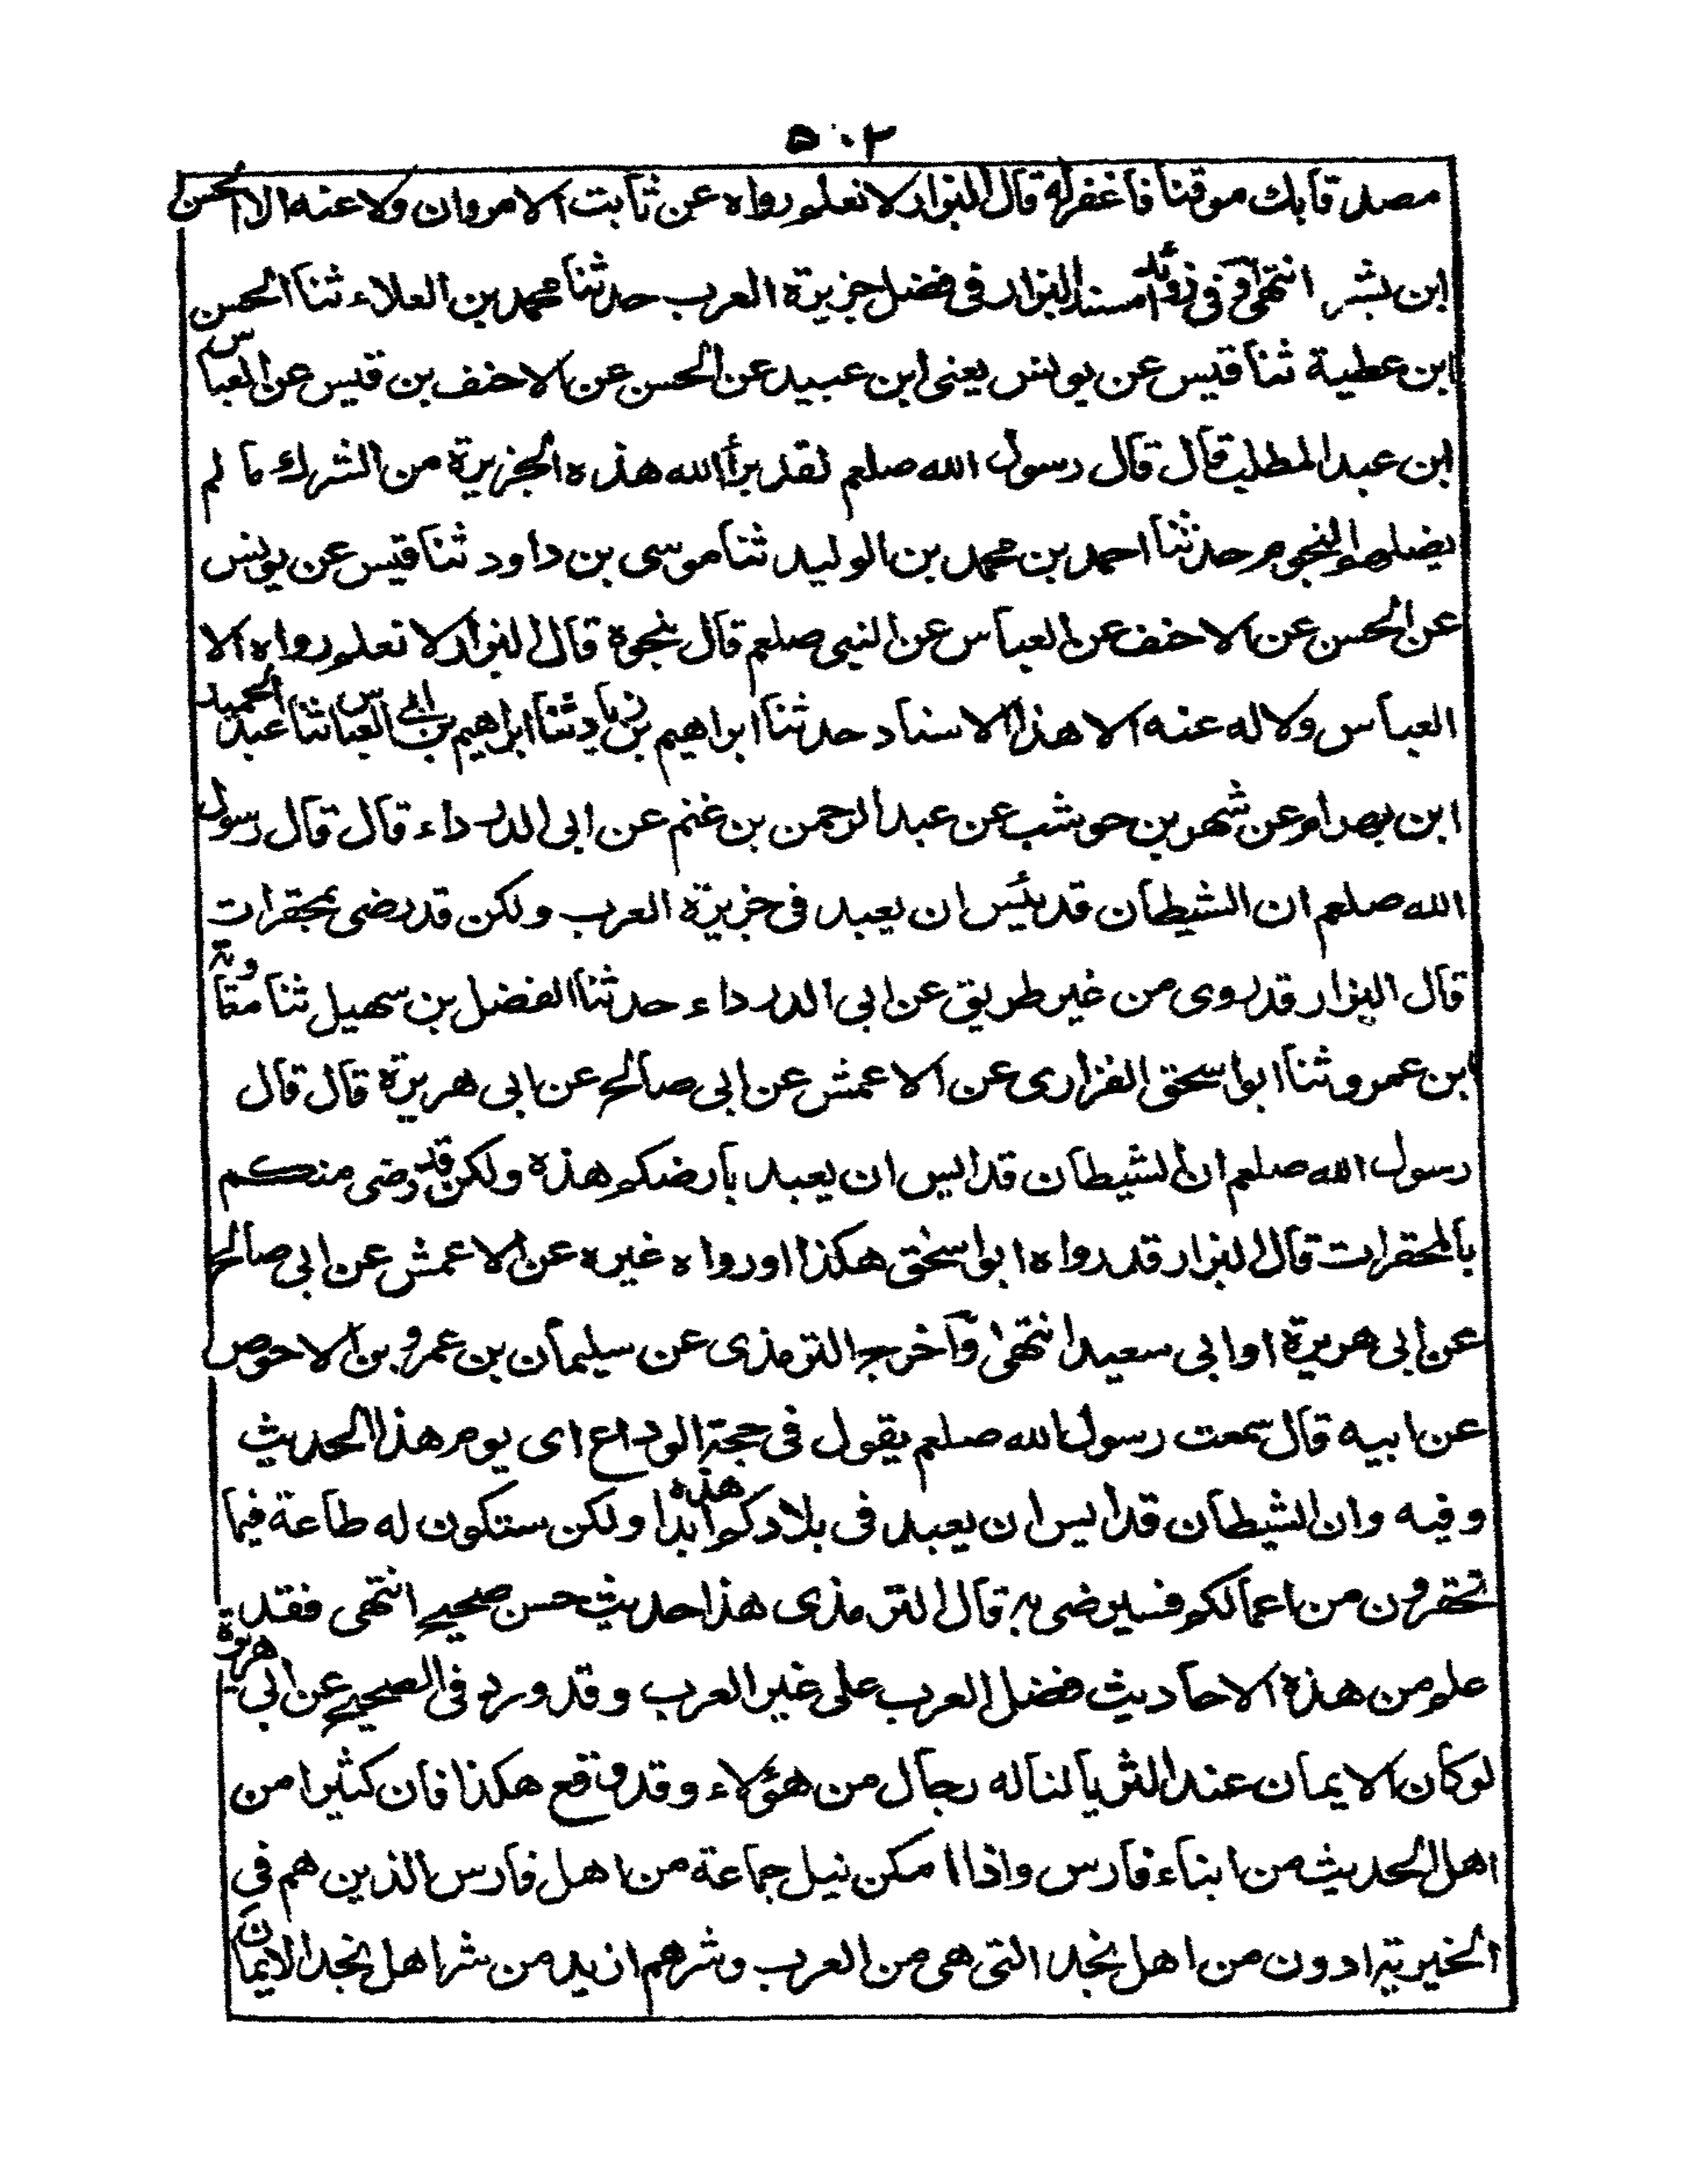 ٥٠٢
مصدقا بك موقنا فاغفر له قال البزار لا نعلم رواه عن ثابت الا مروان ولا عنه الا الحسن
ابن بشر انتهى وفي زوائد مسند البزار في فضل جزيرة العرب حدثنا محمد بن العلاء ثنا الحسن
ابن عطية ثنا قيس عن يونس يعنى ابن عبيد عن الحسن عن الاحنف بن قيس عن العباس
ابن عبد المطلب قال قال رسول الله صلعم لقد برأ الله هذه الجزيرة من الشرك ما لم
يضلهم النجوم حدثنا احمد بن محمد بن الوليد ثنا موسى بن داود ثنا قيس عن يونس
عن الحسن عن الاحنف عن العباس عن النبى صلعم قال بنحوه قال البزار لا نعلم رواه الا
العباس ولا له عنه الا هذا الاسناد حدثنا ابراهيم بن زياد ثنا ابراهيم بن ابى العباس ثنا عبد الحميد
ابن بهرام عن شهر بن حوشب عن عبد الرحمن بن غنم عن ابى الدرداء قال قال رسول
الله صلعم ان الشيطان قد يئس ان يعبد فى جزيرة العرب ولكن قد رضى بمحقرات
قال البزار قد روى من غير طريق عن ابى الدرداء حدثنا الفضل بن سهيل ثنا معاوية
ابن عمرو ثنا ابو اسحق الفزارى عن الاعمش عن ابى صالح عن ابى هريرة قال قال
رسول الله صلعم ان الشيطان قد ايس ان يعبد بارضكم هذه ولكن قد رضى منكم
بالمحقرات قال البزار قد رواه ابو اسحق هكذا اورواه غيره عن الاعمش عن ابى صالح
عن ابى هريرة او ابى سعيد انتهى واخرج الترمذى عن سليمان بن عمرو بن الاحوص
عن ابيه قال سمعت رسول الله صلعم يقول فى حجة الوداع اى يوم هذا الحديث
وفيه وان الشيطان قد ايس ان يعبد فى بلادكم هذه ابدا ولكن ستكون له طاعة فيما
تحقرون من اعمالكم فسيرضى به قال الترمذى هذا حديث حسن صحيح انتهى فقد
علم من هذه الاحاديث فضل العرب على غير العرب وقد ورد فى الصحيح عن ابى هريرة
لو كان الايمان عند الثريا لناله رجال من هؤلاء وقد وقع هكذا فان كثيرا من
اهل الحديث من ابناء فارس واذا امكن نيل جماعة من اهل فارس الذين هم فى
الخيرية ادون من اهل نجد التى هى من العرب وشرهم ازيد من شر اهل نجد الايمان